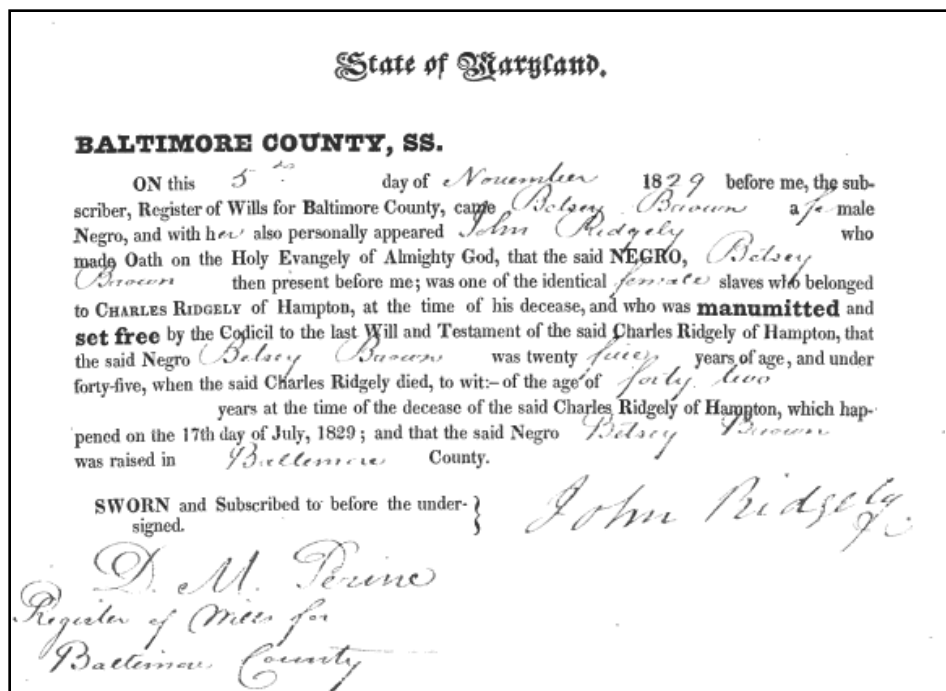 State of Maryland.
BALTIMORE COUNTY, SS.
ON this 5th day of November 1829 before me, the sub-
scriber, Register of Wills for Baltimore County, came Betsey Brown a fe male
Negro, and with her also personally appeared John Ridgely who
made Oath on the Holy Evangely of Almighty God, that the said NEGRO, Betsey
Brown then present before me; was one of the identical female slaves who belonged
to CHARLES RIDGELY of Hampton, at the time of his decease, and who was manumitted and
set free by the Codicil to the last Will and Testament of the said Charles Ridgely of Hampton, that
the said Negro Betsey Brown was twenty years of age, and under
forty-five, when the said Charles Ridgely died, to wit:– of the age of forty two
years at the time of the decease of the said Charles Ridgely of Hampton, which hap-
pened on the 17th day of July, 1829; and that the said Negro Betsey Brown
was raised in Baltimore County.
SWORN and Subscribed to before the under- }
signed.
John Ridgely
D. M. Perine
Register of Wills for
Baltimore County